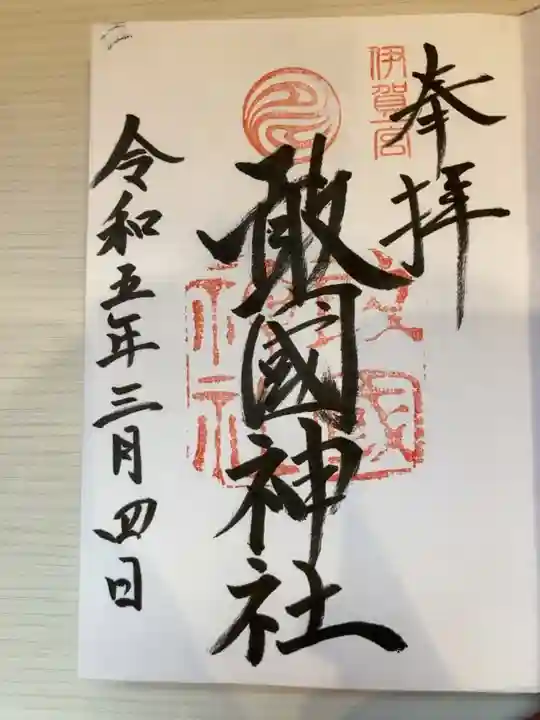 奉拝
伊賀一宮
敢國神社
令和五年三月四日